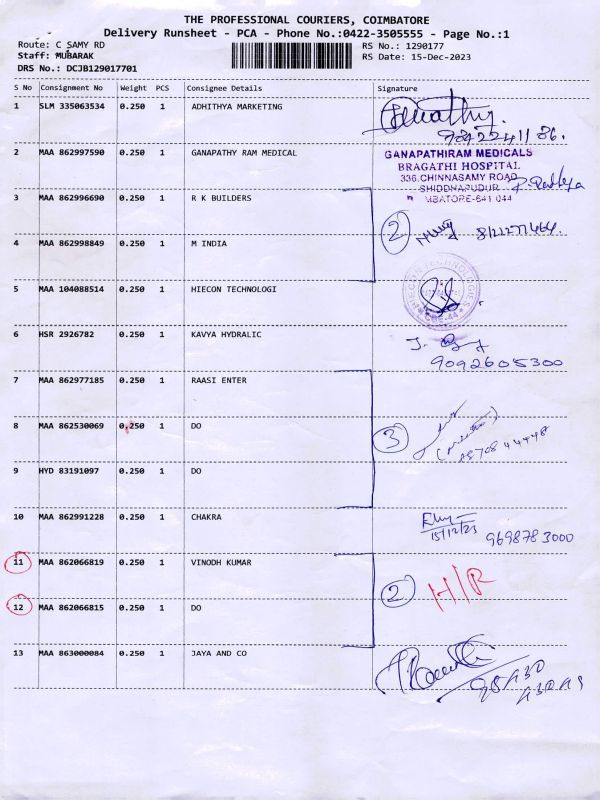 THE PROFESSIONAL COURIERS, COIMBATORE
Delivery Runsheet - PCA - Phone No.:0422-3505555 - Page No.:1
Route: C SAMY RD
RS No.: 1290177
Staff: MUBARAK
RS Date: 15-Dec-2023
DRS No.: DCJB129017701
S No Consignment No Weight PCS Consignee Details Signature
1 SLM 335063534 0.250 1 ADHITHYA MARKETING
2 MAA 862997590 0.250 1 GANAPATHY RAM MEDICAL
GANAPATHIRAM MEDICALS
BRAGATHI HOSPITAL
336,CHINNASAMY ROAD
SHIDDHAPUDUR
MBATORE-641 044
3 MAA 862996690 0.250 1 R K BUILDERS
2
4 MAA 862998849 0.250 1 M INDIA
5 MAA 104088514 0.250 1 HIECON TECHNOLOGI
6 HSR 2926782 0.250 1 KAVYA HYDRALIC
9092605300
7 MAA 862977185 0.250 1 RAASI ENTER
8 MAA 862530069 0.250 1 DO
3
9 HYD 83191097 0.250 1 DO
10 MAA 862991228 0.250 1 CHAKRA
15/12/23
9698783000
11 MAA 862066819 0.250 1 VINODH KUMAR
2 H/R
12 MAA 862066815 0.250 1 DO
13 MAA 863000084 0.250 1 JAYA AND CO